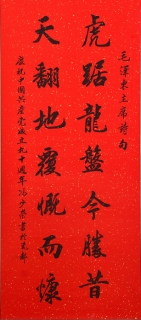 毛澤東主席詩句
虎踞龍盤今勝昔
天翻地覆慨而慷
慶祝中國共產党成立九十週年馮少榮書於